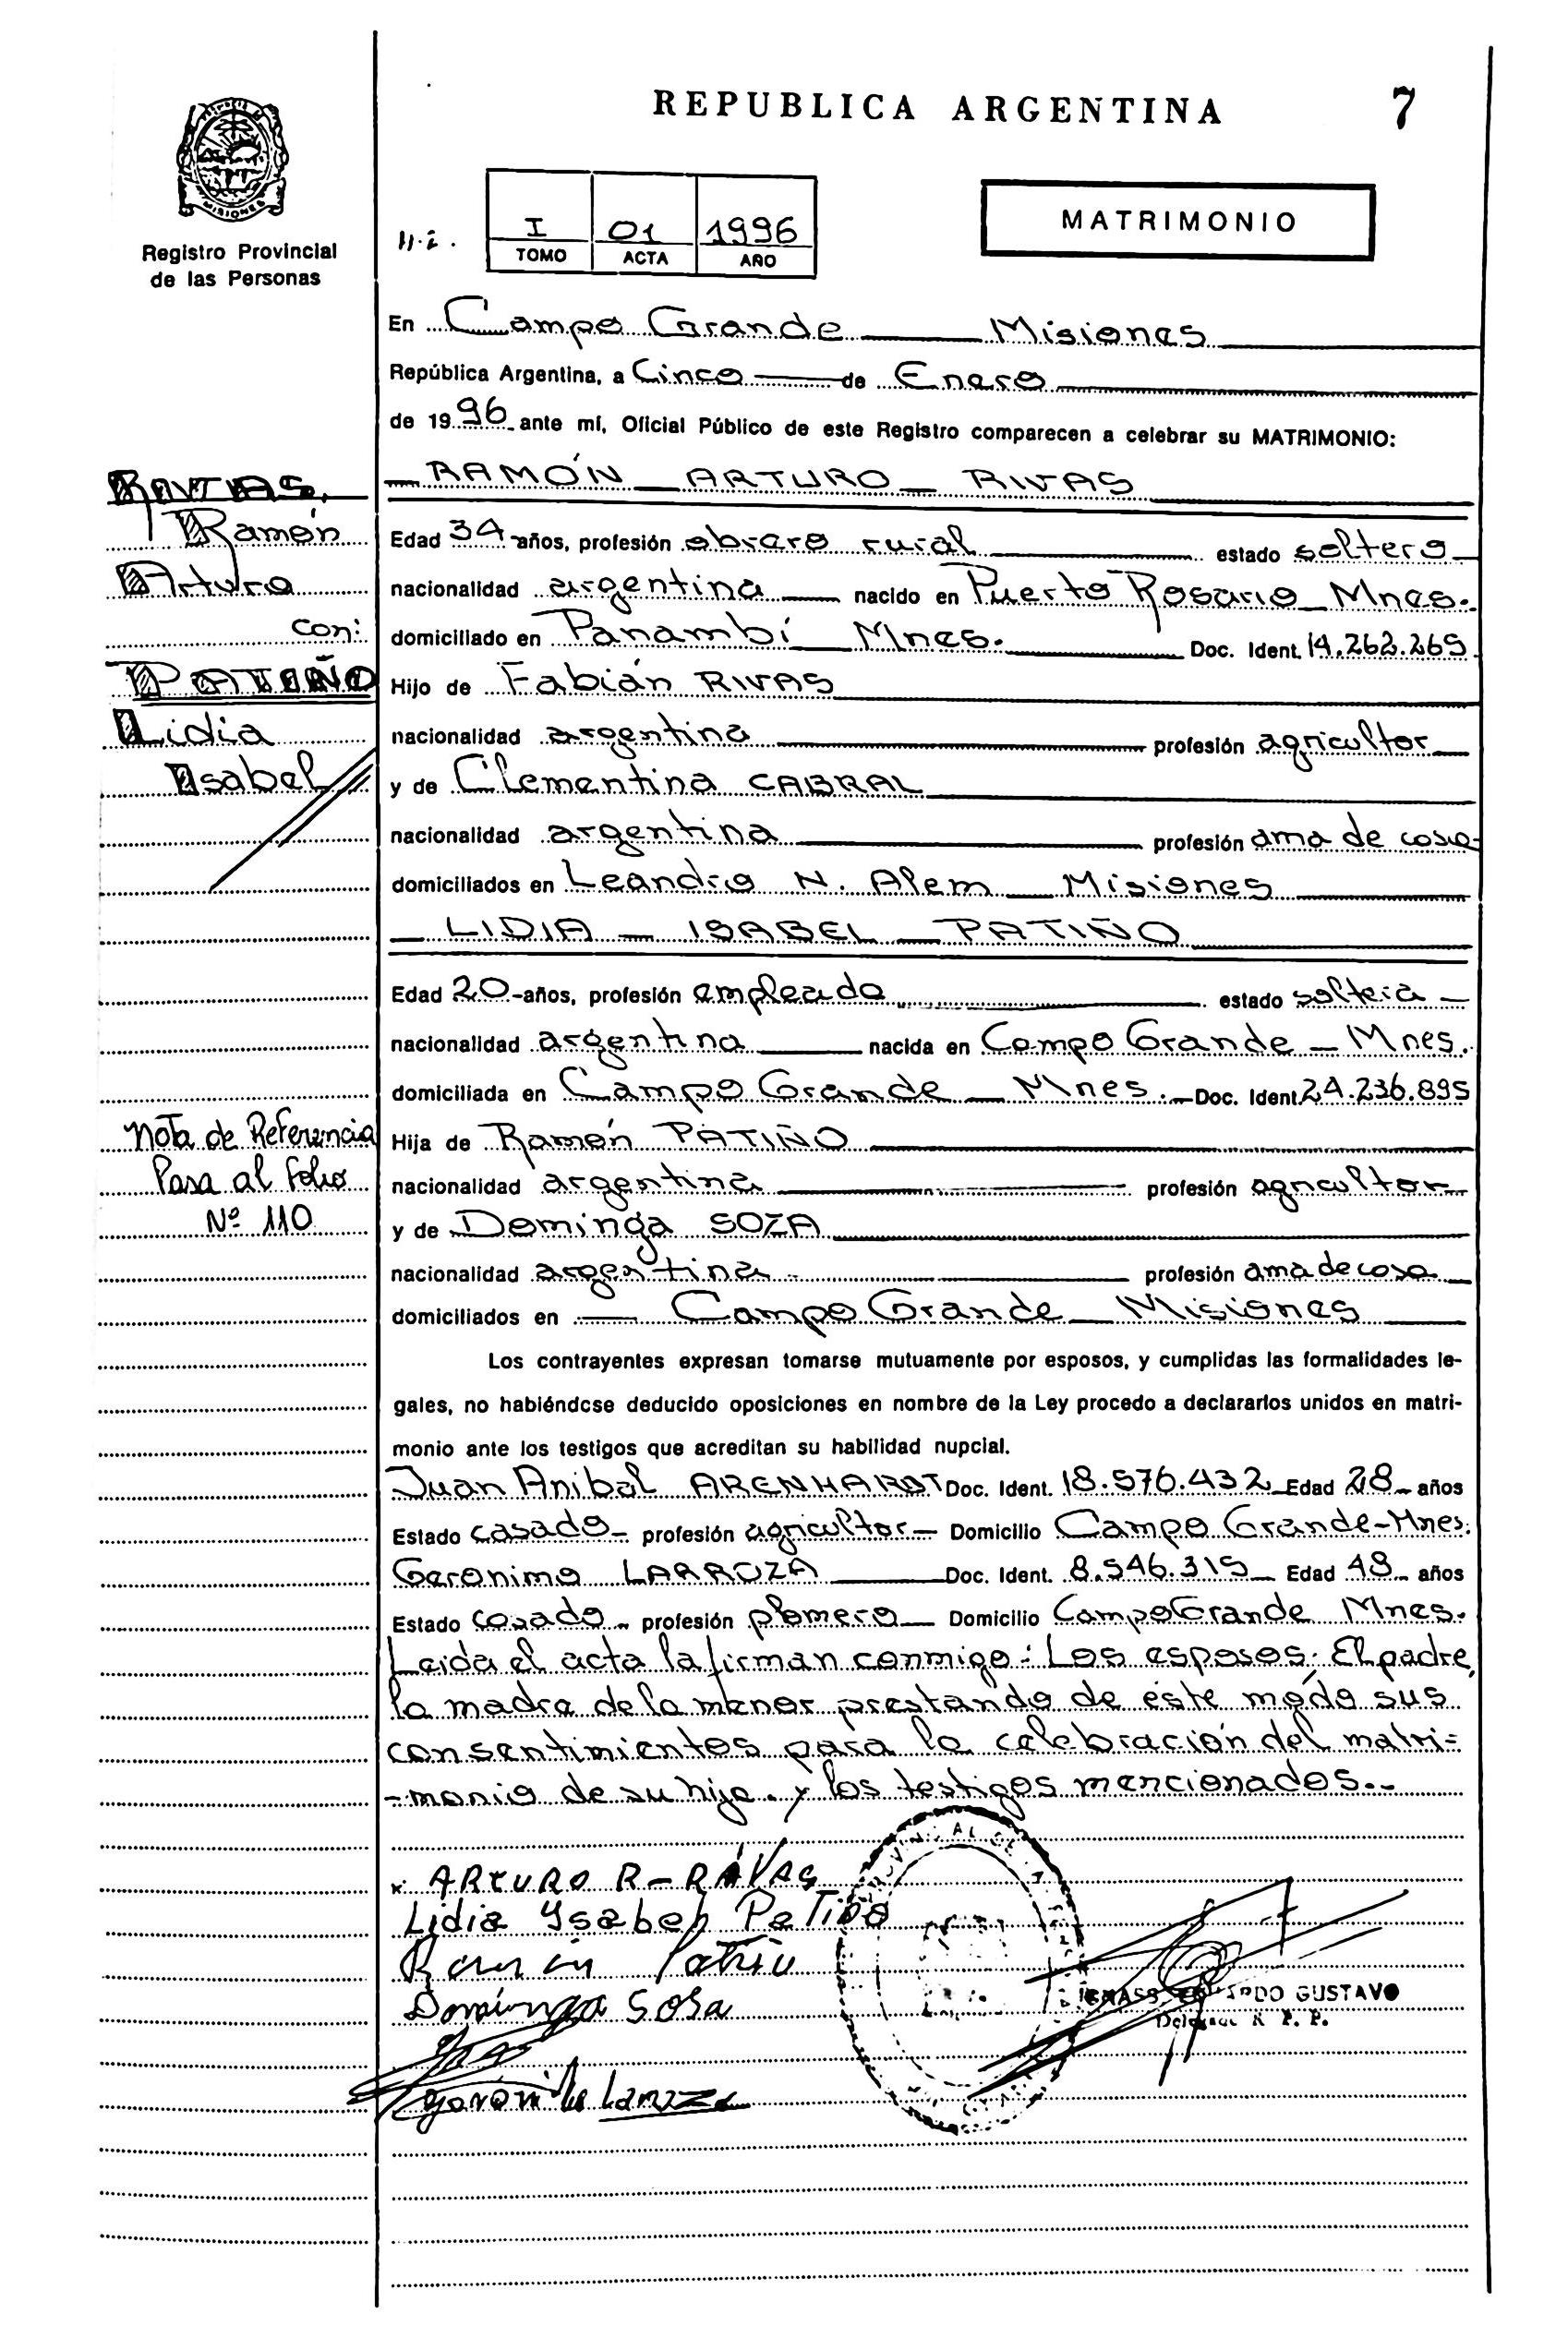 REPUBLICA ARGENTINA
7
MISIONES
Registro Provincial
de las Personas
I 01 1996
TOMO ACTA AÑO
MATRIMONIO
En Campo Grande Misiones
República Argentina, a Cinco de Enero
de 1996 ante mí, Oficial Público de este Registro comparecen a celebrar su MATRIMONIO:
RIVAS,
Ramón
Arturo
con:
PATIÑO
Lidia
Isabel
RAMÓN ARTURO RIVAS
Edad 34 años, profesión obrero rural estado soltero
nacionalidad argentina nacido en Puerto Rosario Mnes.
domiciliado en Panambí Mnes. Doc. Ident. 14.262.269
Hijo de Fabián RIVAS
nacionalidad argentina profesión agricultor
y de Clementina CABRAL
nacionalidad argentina profesión ama de casa
domiciliados en Leandro N. Alem Misiones
LIDIA ISABEL PATIÑO
Edad 20 años, profesión empleada estado soltera
nacionalidad argentina nacida en Campo Grande Mnes.
domiciliada en Campo Grande Mnes. Doc. Ident. 24.236.895
Nota de Referencia
Pasa al Folio
Nº 110
Hija de Ramón PATIÑO
nacionalidad argentina profesión agricultor
y de Dominga SOZA
nacionalidad argentina profesión ama de casa
domiciliados en Campo Grande Misiones
Los contrayentes expresan tomarse mutuamente por esposos, y cumplidas las formalidades le-
gales, no habiéndose deducido oposiciones en nombre de la Ley procedo a declararlos unidos en matri-
monio ante los testigos que acreditan su habilidad nupcial.
Juan Anibal ARENHARDT Doc. Ident. 18.576.432 Edad 28 años
Estado casado profesión agricultor Domicilio Campo Grande-Mnes.
Geronimo LARROZA Doc. Ident. 8.546.315 Edad 48 años
Estado casado profesión plomero Domicilio Campo Grande Mnes.
Leida el acta la firman conmigo: Los esposos; El padre,
la madre de la menor prestando de este modo sus
consentimientos para la celebración del matri-
-monio de su hija. y los testigos mencionados.-
x ARTURO R- RIVAS
Lidia Ysabel Patiño
Ramón Patiño
Dominga Sosa
GUSTAVO
R. P. P.